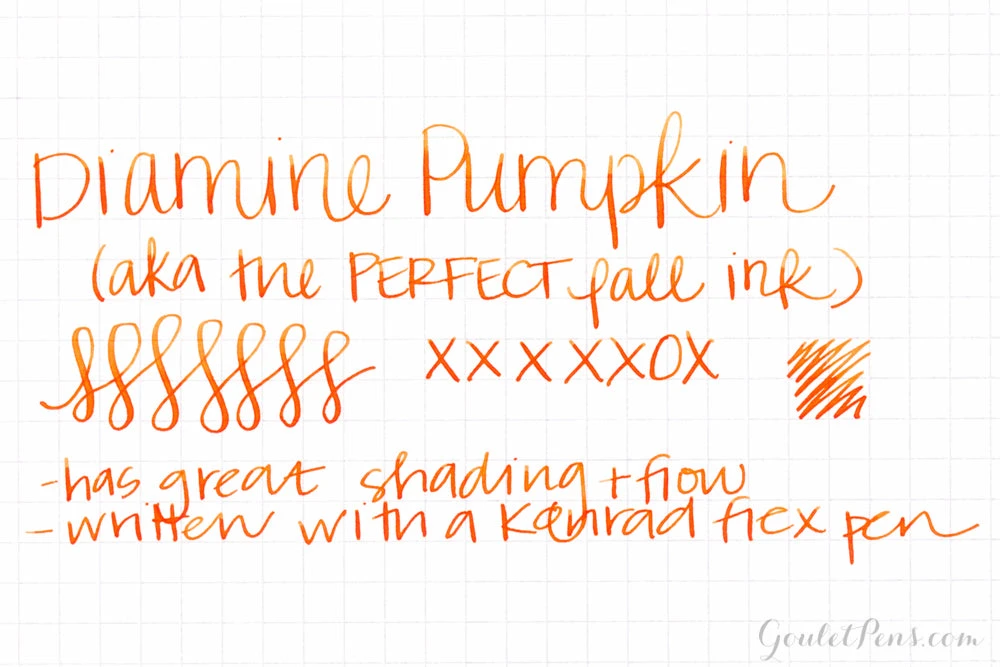 Diamine Pumpkin
(aka the PERFECT fall ink)
XXXXXOX
-has great shading + flow
-written with a Konrad flex pen
GouletPens.com